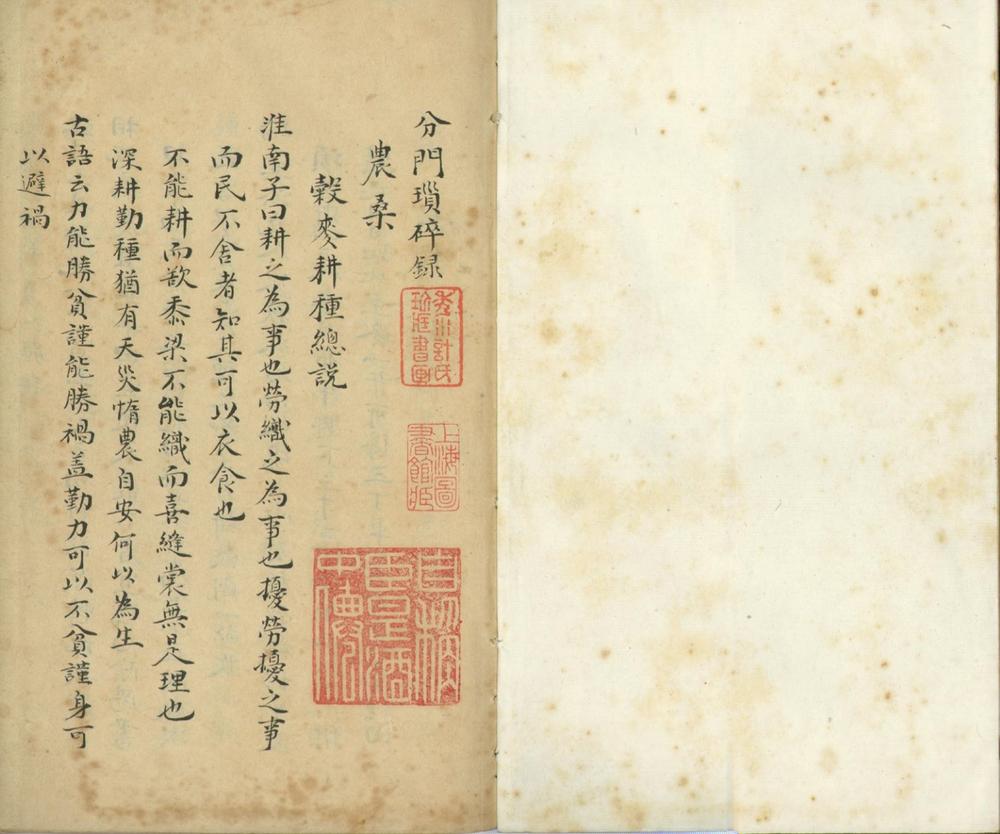 分門瑣碎録
農桑
穀麥耕種總説
淮南子曰耕之為事也勞織之為事也擾勞擾之事
而民不舍者知其可以衣食也
不能耕而欲黍梁不能織而喜縫裳無是理也
深耕勤種猶有天災惰農自安何以為生
古語云力能勝貧謹能勝禍盖勤力可以不貧謹身可
以避禍
秀川計氏
珍藏書画
上海圖
書館藏